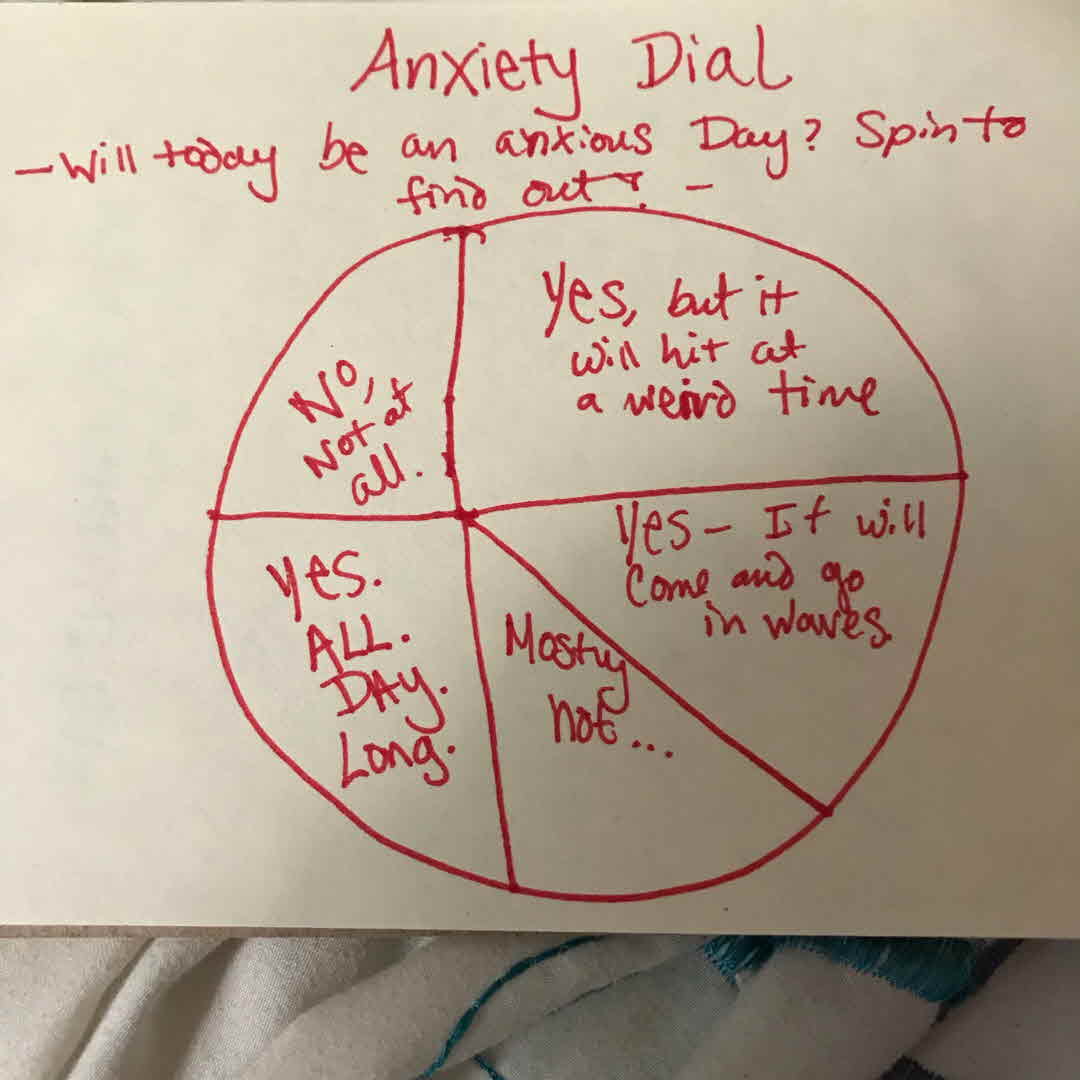 Anxiety Dial
- Will today be an anxious Day? Spin to
find out! -
No,
Not at
all.
Yes, but it
will hit at
a weird time
Yes - It will
Come and go
in waves.
Mostly
not...
Yes.
ALL.
DAY.
Long.